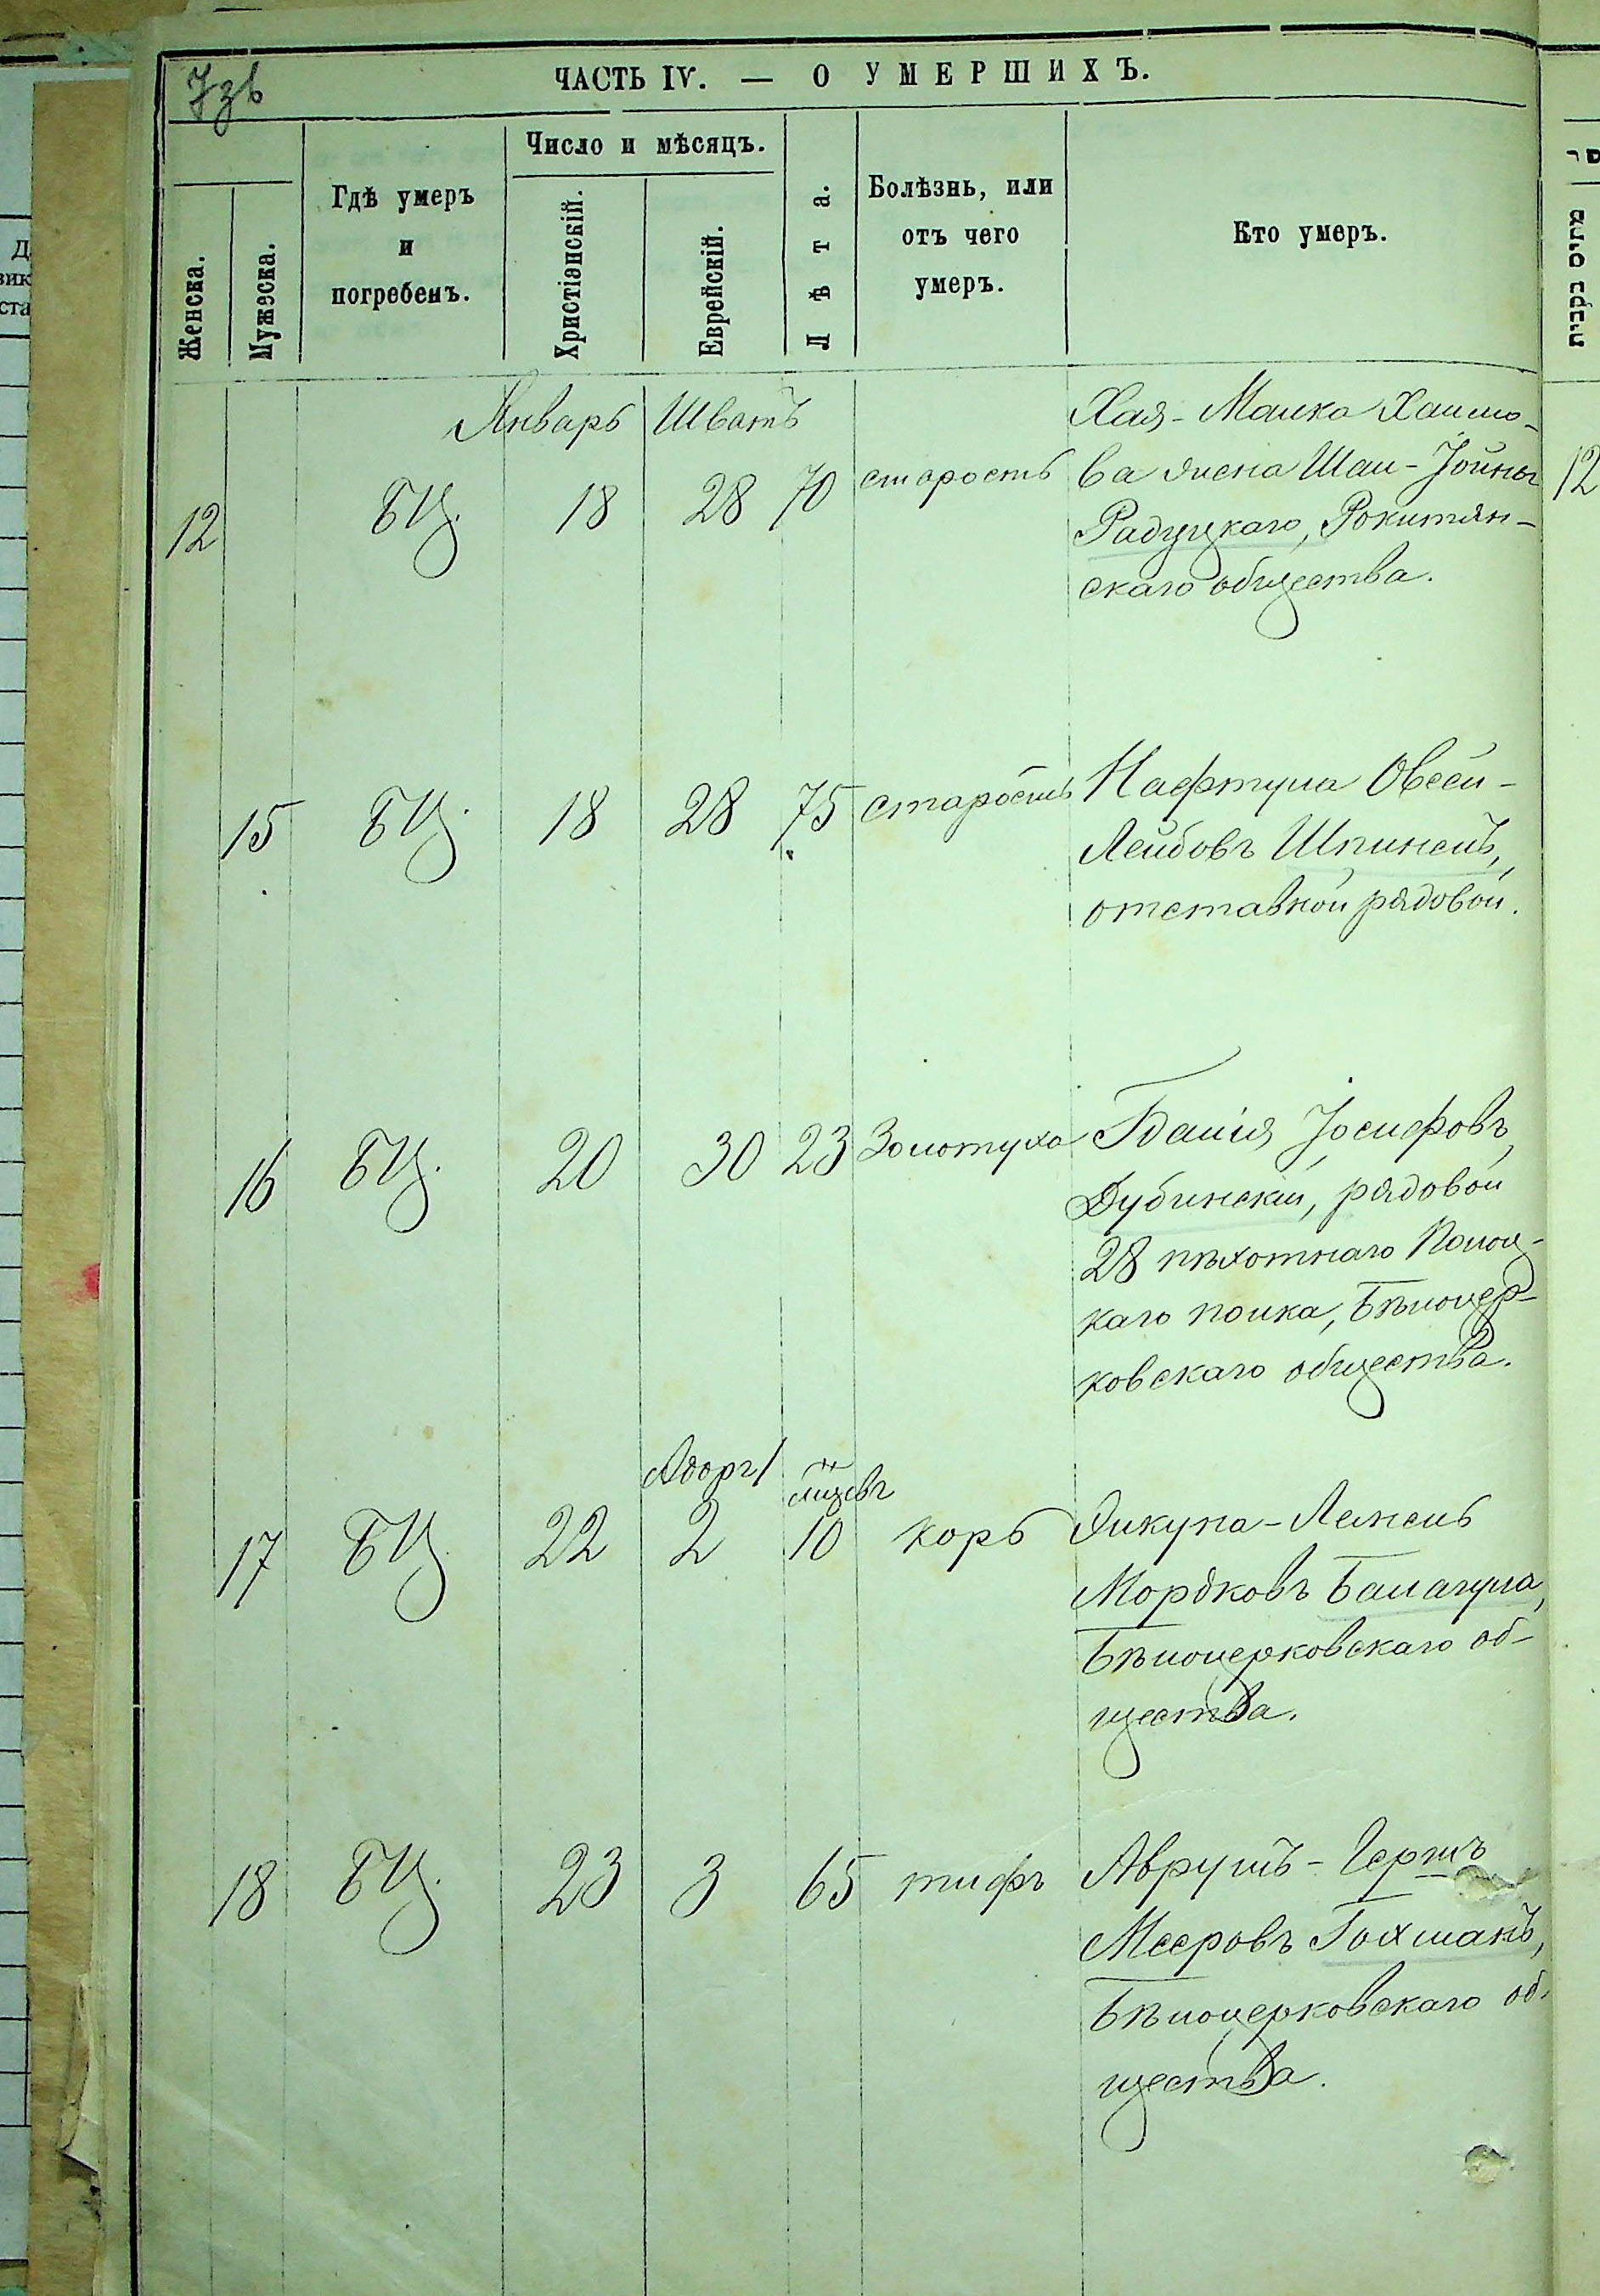 7зв
ЧАСТЬ IV. — О УМЕРШИХЪ.
Женска.
Мужеска.
Гдѣ умеръ
и
погребенъ.
Число и мѣсяцъ.
Христіанскій.
Еврейскій.
Лѣта.
Болѣзнь, или
отъ чего
умеръ.
Кто умеръ.
Январь Шватъ
12 БЦ. 18 28 70 старость
Хая-Малка Хаимо-
ва жена Шаи-Іойны
Радуцкаго, Рокитян-
скаго общества.
12
15 БЦ. 18 28 75 старость
Нафтула Овсей-
Лейбовъ Шпинель,
отставной рядовой.
16 БЦ. 20 30 23 Золотуха
Іосифовъ
Дубинскій, рядовой
28 пѣхотнаго Полоц-
каго полка, Бѣлоцер-
ковскаго общества.
Адаръ /
мѣсяцевъ
17 БЦ. 22 2 10 корь
Мордковъ Балагула,
Бѣлоцерковскаго об-
щества.
18 БЦ. 23 3 65 тифъ
Аврумъ-Гершъ
Мееровъ Гохманъ,
Бѣлоцерковскаго об-
щества.